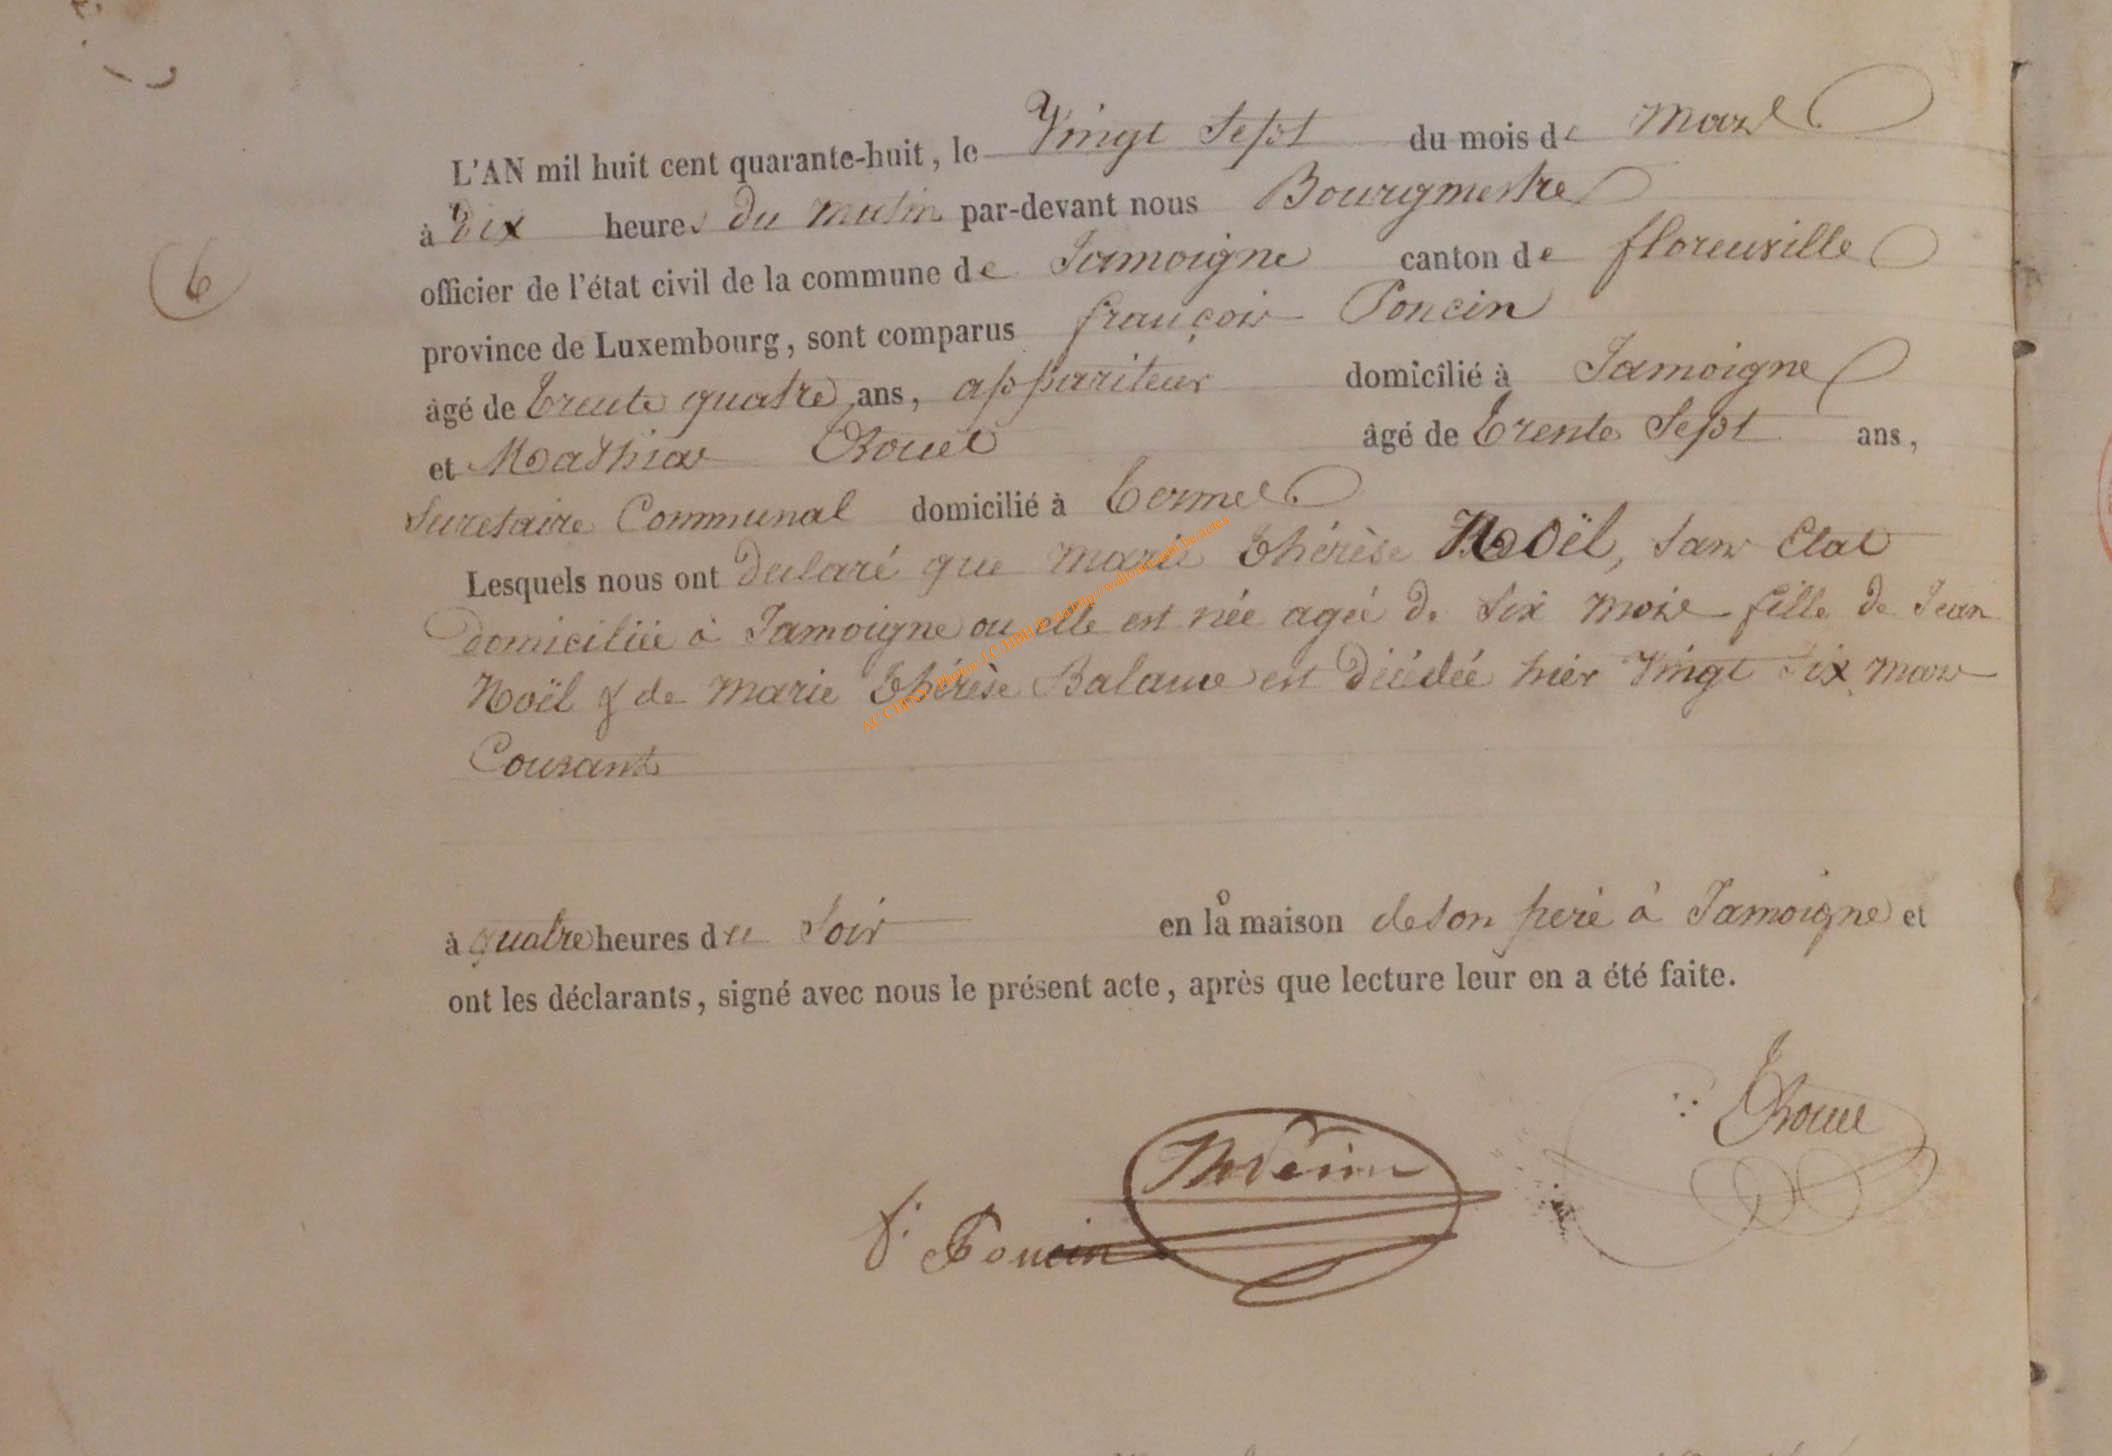 L'AN mil huit cent quarante-huit, le Vingt Sept du mois de Mars
à Dix heures du matin par-devant nous Bourgmestre
officier de l'état civil de la commune de Jamoigne canton de florenville
province de Luxembourg, sont comparus françois Poncin
6
âgé de trente quatre ans, appariteur domicilié à Jamoigne
et Mathias Rouel âgé de trente Sept ans,
Secretaire Communal domicilié à termes
Lesquels nous ont declaré que marie thérèse Noël, sans Etat
domiciliée à Jamoigne ou elle est née ageé de Six mois fille de Jean
Noël & de marie thérèse est décédée hier Vingt six mars
Courant
à quatre heures du Soir en la maison de son pere à Jamoigne et
ont les déclarants, signé avec nous le présent acte, après que lecture leur en a été faite.
f. Poncin